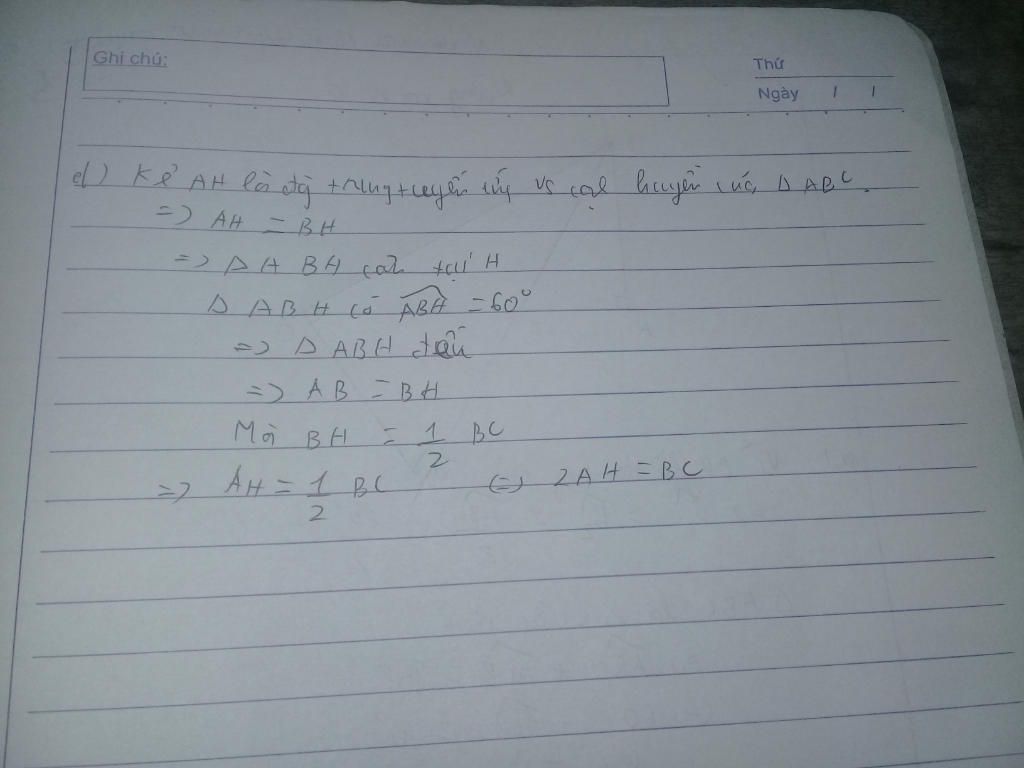 Ghi chú:
Thứ
Ngày / /
d) Kẻ AH là đg trung tuyến ứng vs cạh huyền của Δ ABC.
=> AH = BH
=> Δ HBH cân tại H
Δ ABH có ABH = 60°
=> Δ ABH đều
=> AB = BH
Mà BH = 1/2 BC
=> AH = 1/2 BC <=> 2AH = BC